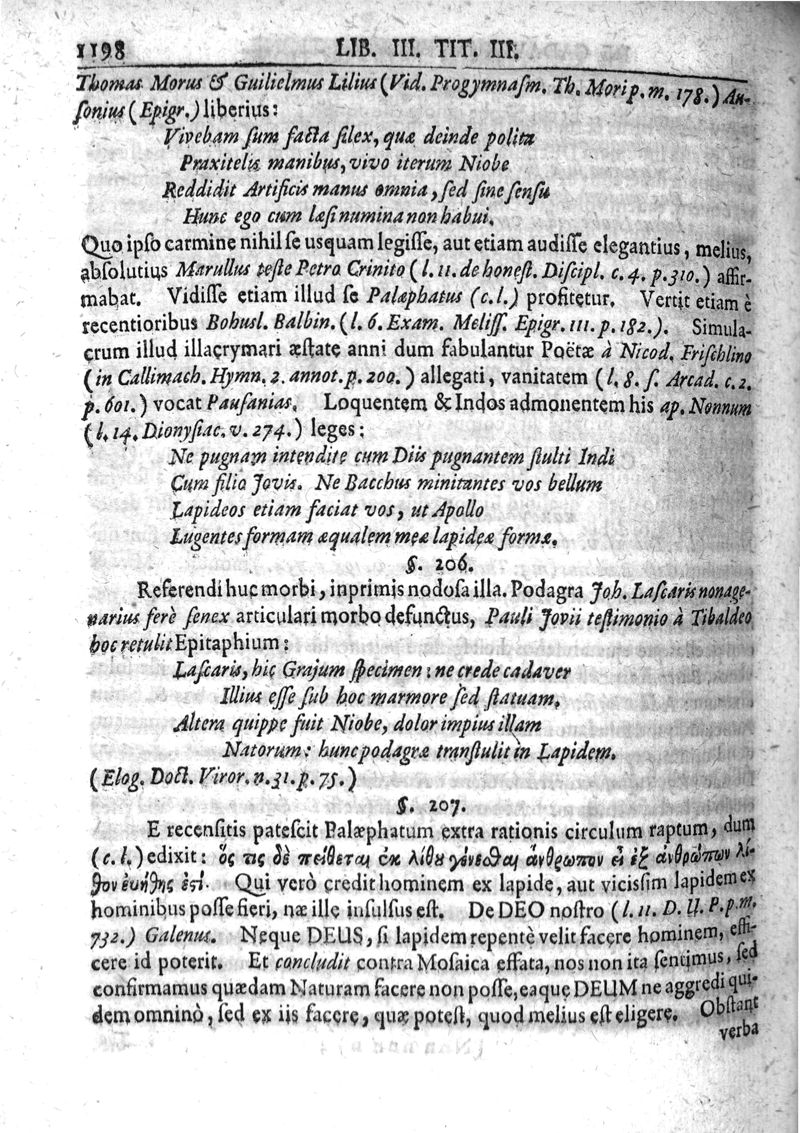 1198 LIB. III. TIT. III.
Thomas Morus & Guilielmus Lilius (Vid. Progymnaſm. Th. Mori p. m. 178.) Au-
ſonius (Epigr.) liberius:
Vivebam ſum facta ſilex, quæ deinde polita
Praxitelis manibus, vivo iterum Niobe
Reddidit Artificis manus omnia, ſed ſine ſenſu
Hunc ego cum læſi numina non habui.
Quo ipſo carmine nihil ſe usquam legiſſe, aut etiam audiſſe elegantius, melius,
abſolutius Marullus teſte Petro Crinito (l. 11. de honeſt. Diſcipl. c. 4. p. 310.) affir-
mabat. Vidiſſe etiam illud ſe Palæphatus (c. l.) profitetur. Vertit etiam è
recentioribus Bohusl. Balbin. (l. 6. Exam. Meliſſ. Epigr. 111. p. 182.). Simula-
crum illud illacrymari æſtate anni dum fabulantur Poëtæ à Nicod. Friſchlino
(in Callimach. Hymn. 2. annot. p. 200.) allegati, vanitatem (l. 8. ſ. Arcad. c. 2.
p. 601.) vocat Pauſanias. Loquentem & Indos admonentem his ap. Nonnum
(l. 14. Dionyſiac. v. 274.) leges:
Ne pugnam intendite cum Diis pugnantem ſtulti Indi
Cum filio Jovis. Ne Bacchus minitantes vos bellum
Lapideos etiam faciat vos, ut Apollo
Lugentes formam æqualem meæ lapideæ formæ.
§. 206.
Referendi huc morbi, inprimis nodoſa illa. Podagra Joh. Laſcaris nonage-
narius ferè ſenex articulari morbo defunctus, Pauli Jovii teſtimonio à Tibaldeo
hoc retulit Epitaphium:
Laſcaris, hic Grajum ſpecimen: ne crede cadaver
Illius eſſe ſub hoc marmore ſed ſtatuam.
Altera quippe fuit Niobe, dolor impius illam
Natorum: hunc podagræ tranſtulit in Lapidem.
(Elog. Doct. Viror. n. 31. p. 75.)
§. 207.
E recenſitis pateſcit Palæphatum extra rationis circulum raptum, dum
(c. l.) edixit: ὅς τις δὲ πείθεται ἐκ λίθου γενέσθαι ἄνθρωπον εἰ ἐξ ἀνθρώπων λί-
θον εὐήθης ἐστί. Qui verò credit hominem ex lapide, aut viciſſim lapidem ex
hominibus poſſe fieri, næ ille inſulſus eſt. De DEO noſtro (l. 11. D. U. P. p. m.
732.) Galenus. Neque DEUS, ſi lapidem repentè velit facere hominem, effi-
cere id poterit. Et concludit contra Moſaica effata, nos non ita ſentimus, ſed
confirmamus quædam Naturam facere non poſſe, eaque DEUM ne aggredi qui-
dem omninò, ſed ex iis facere, quæ poteſt, quod melius eſt eligere. Obſtant
verba